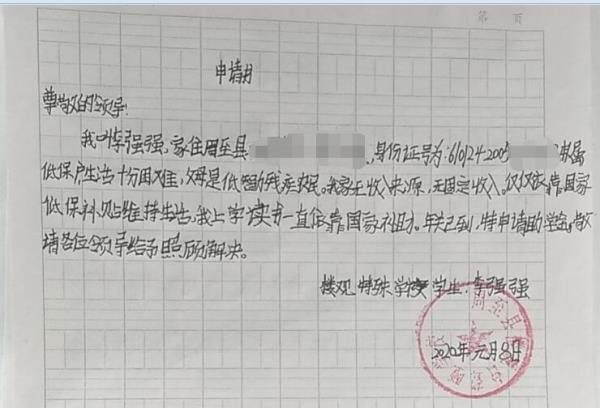 第 页
申请书
尊敬的领导:
我叫李强强,家住周至县,身份证号为:610124200 家属
低保户生活十分困难,父母是低智力残疾农民。我家无收入来源,无固定收入。仅仅依靠国家
低保补贴维持生活。我上学读书一直依靠国家补助。年关已到,特申请助学金,敬
请各位领导给予照顾解决。
楼观特殊学校学生:李强强
周至县
2020年元月8日